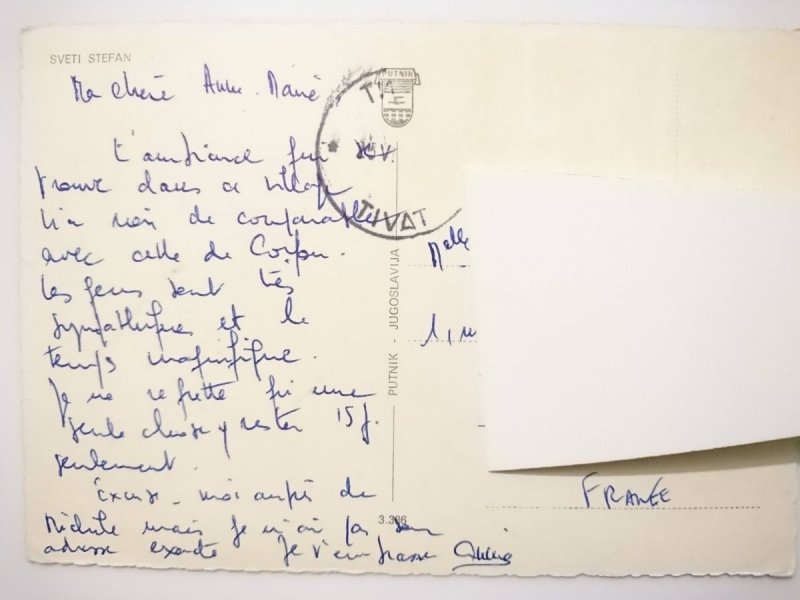 SVETI STEFAN
Ma chère Anne-Marie
L'ambiance qui se
trouve dans ce village
n'a rien de comparable
avec celle de Corfou.
Les gens sont très
sympathiques et le
temps magnifique.
Je ne regrette qu'une
seule chose y rester 15 j.
seulement.
Excuse-moi auprès de
mais je n'ai pas son
adresse exacte Je t'embrasse
PUTNIK
TIVAT
PUTNIK - JUGOSLAVIJA
3.386
Melle
1,
FRANCE